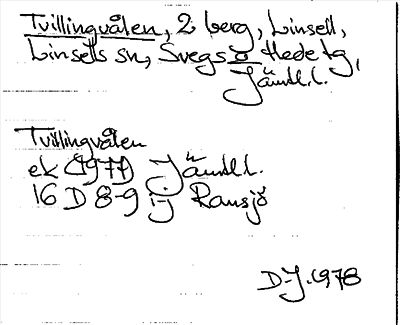 Tvillingvålen, 2 berg, Linsell,
Linsells sn, Svegs o Hede tg,
Jämtl. l.
Tvillingvålen
ek (1977) Jämtl. l.
16 D 8-9 ij Ransjö
D-J. 1978